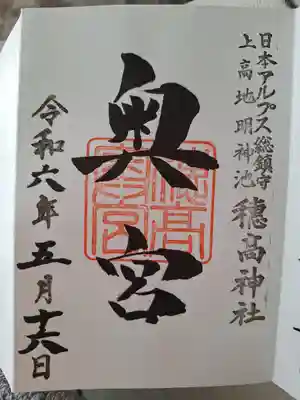 日本アルプス総鎮守
上高地明神池
穂髙神社
奥宮
穂髙
奥宮
令和六年五月十六日